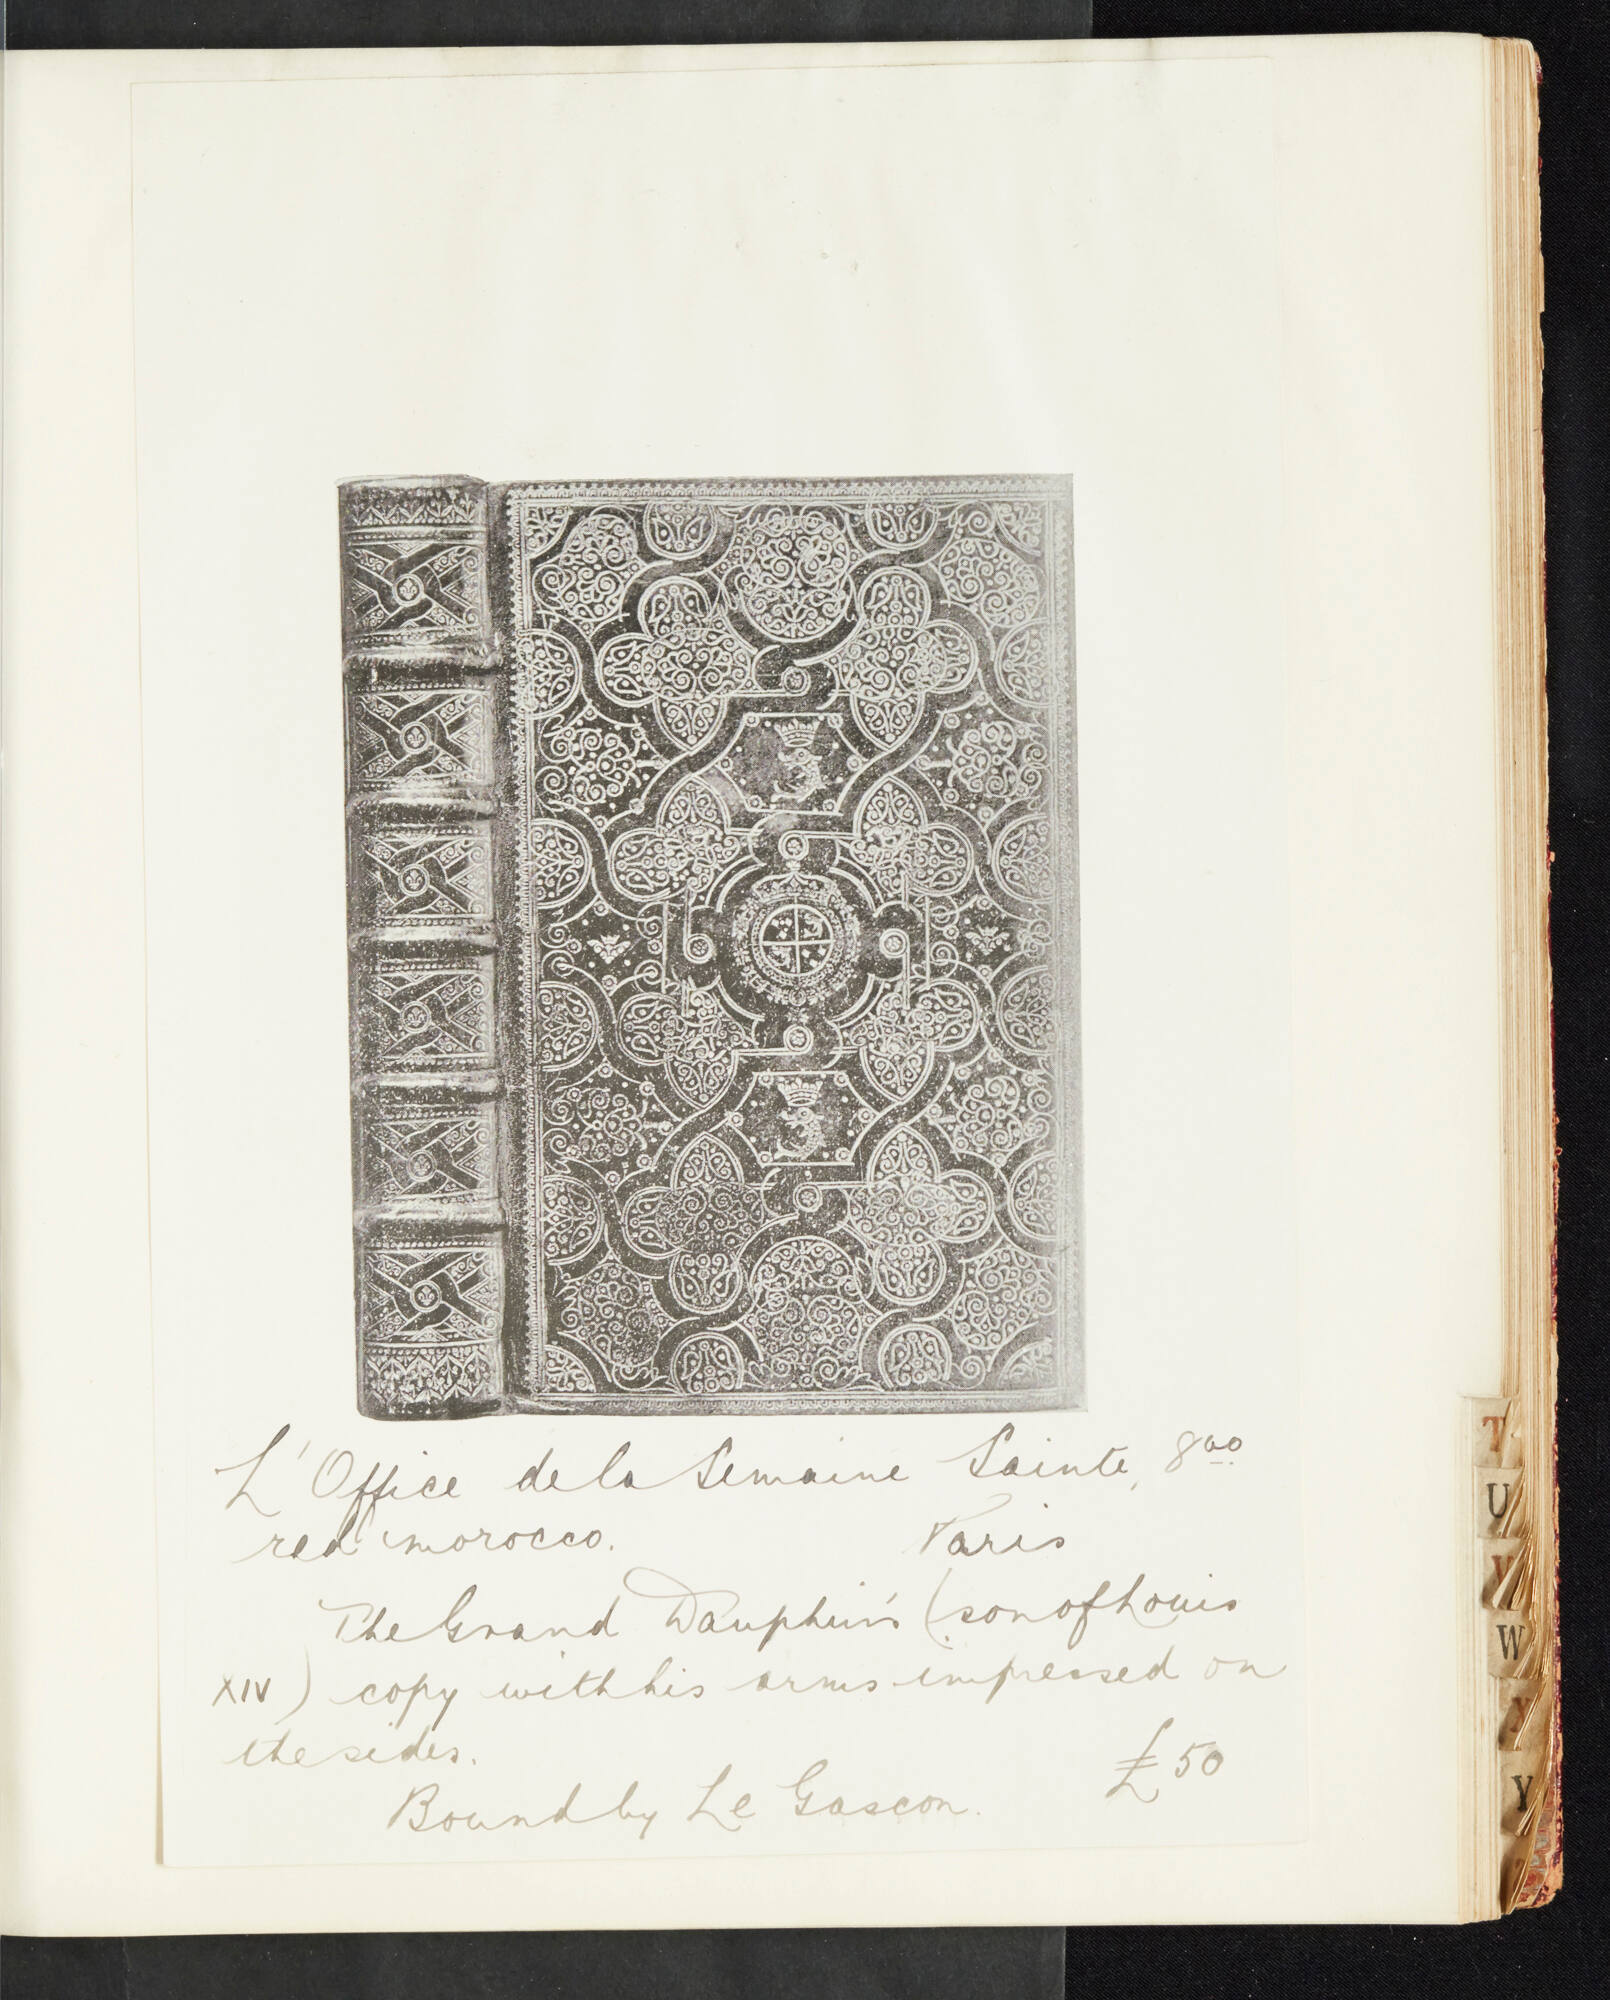 L'Office de la Semaine Sainte, 8vo
red morocco. Paris
The Grand Dauphin's (son of Louis
XIV) copy with his arms impressed on
the sides.
£50
Bound by Le Gascon.
T
U
V
W
X
Y